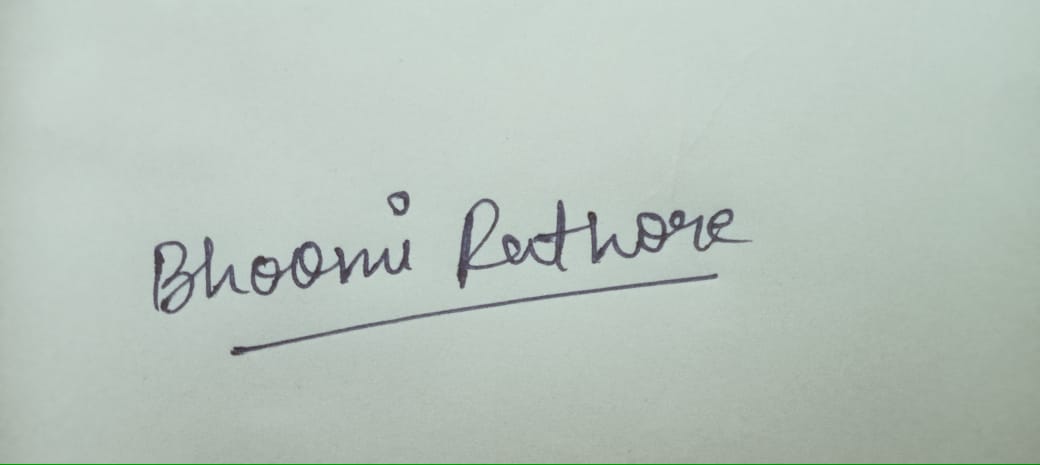 Bhoomi Rathore